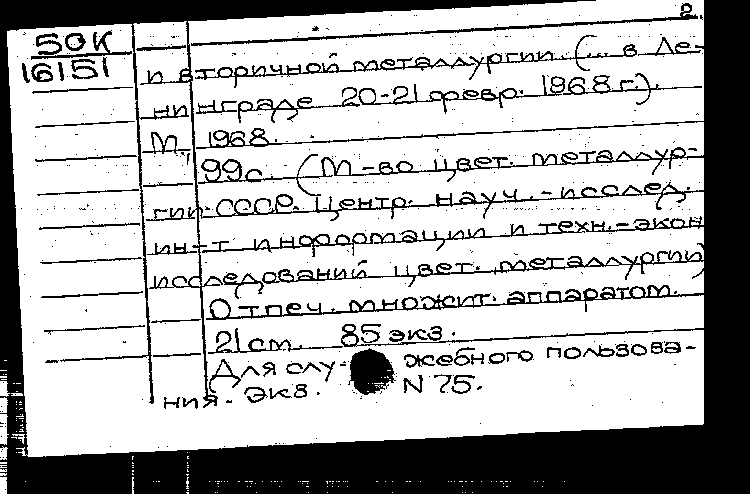 2.
50К
16151
и вторичной металлургии. (... в Ле-
нинграде 20-21 февр. 1968 г.).
М., 1968.
99с. (М-во цвет. металлур-
гии СССР. Центр. науч.-исслед.
ин-т информации и техн.-экон
исследований цвет. металлургии)
Отпеч. множит. аппаратом.
21 см. 85 экз.
Для слу- жебного пользова-
ния. Экз. N 75.